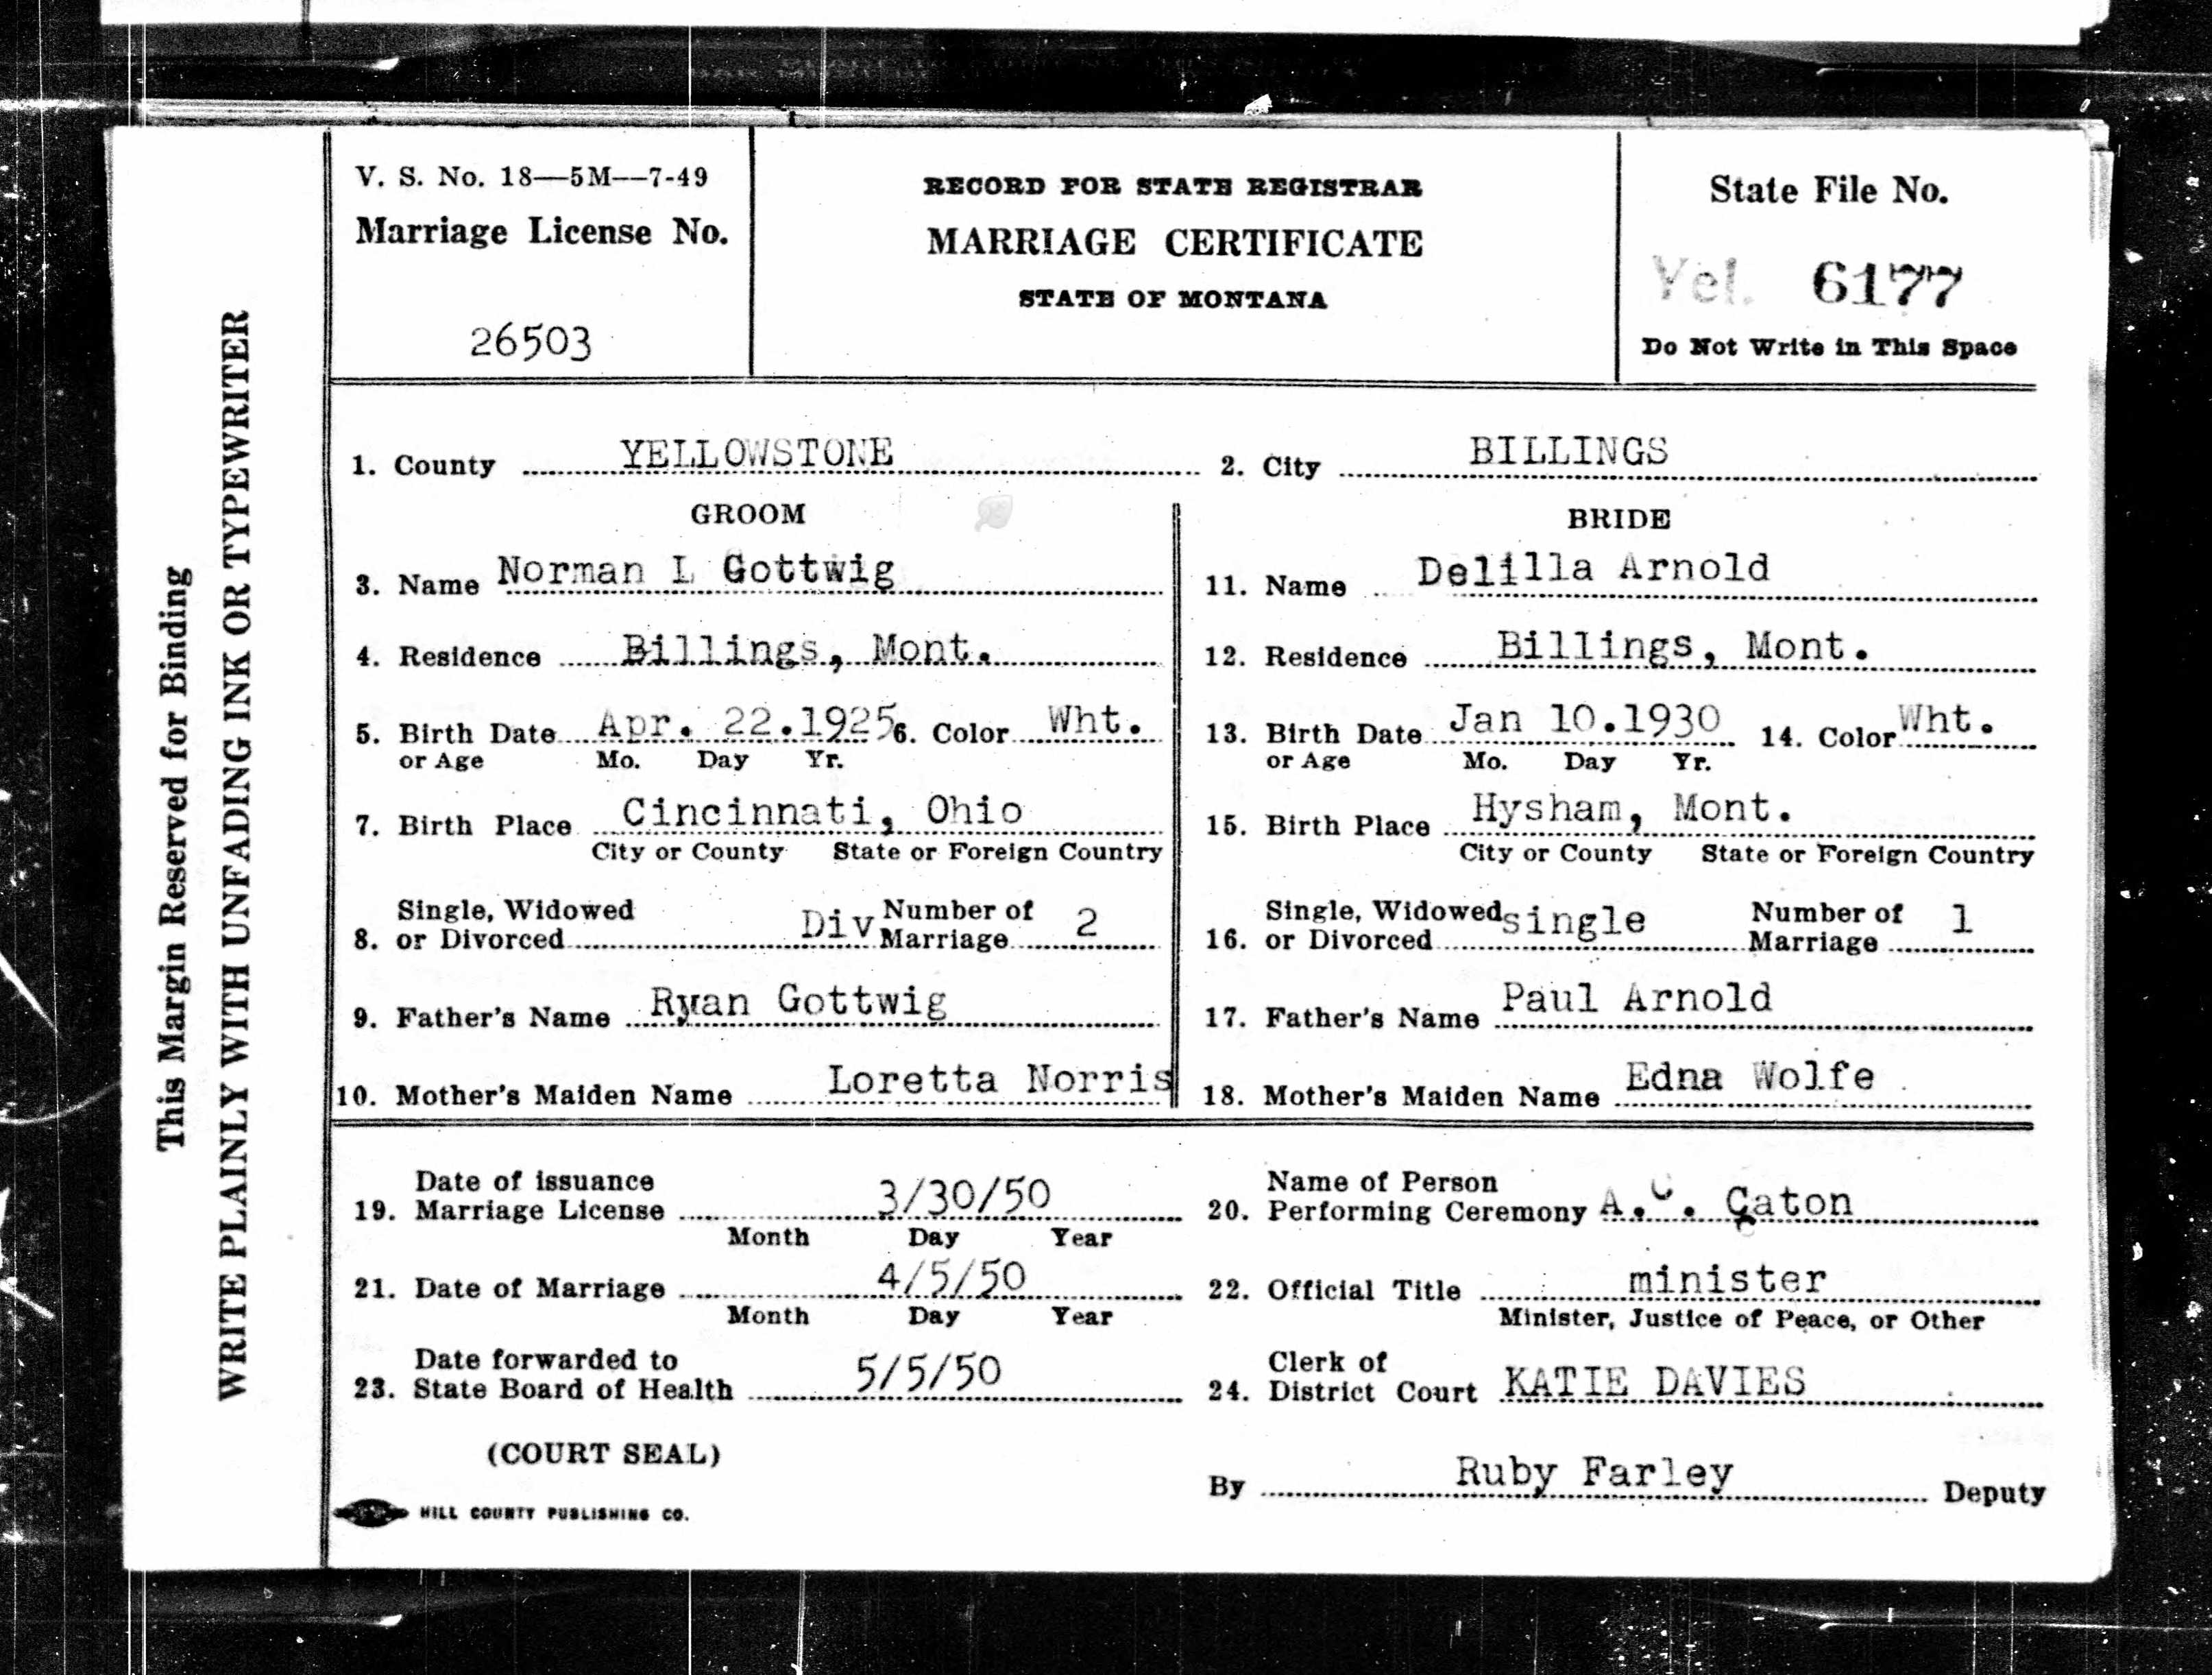 V. S. No. 18—5M—7-49
Marriage License No.
26503
RECORD FOR STATE REGISTRAR
MARRIAGE CERTIFICATE
STATE OF MONTANA
State File No.
Yel. 6177
Do Not Write in This Space
This Margin Reserved for Binding
WRITE PLAINLY WITH UNFADING INK OR TYPEWRITER
1. County YELLOWSTONE 2. City BILLINGS
GROOM
3. Name Norman L Gottwig
4. Residence Billings, Mont.
5. Birth Date Apr. 22.1925 6. Color Wht.
or Age Mo. Day Yr.
7. Birth Place Cincinnati, Ohio
City or County State or Foreign Country
Single, Widowed Number of
8. or Divorced Div Marriage 2
9. Father's Name Ryan Gottwig
10. Mother's Maiden Name Loretta Norris
BRIDE
11. Name Delilla Arnold
12. Residence Billings, Mont.
13. Birth Date Jan 10.1930 14. Color Wht.
or Age Mo. Day Yr.
15. Birth Place Hysham, Mont.
City or County State or Foreign Country
Single, Widowed Number of
16. or Divorced single Marriage 1
17. Father's Name Paul Arnold
18. Mother's Maiden Name Edna Wolfe
Date of issuance
19. Marriage License 3/30/50
Month Day Year
Name of Person
20. Performing Ceremony A. C. Caton
21. Date of Marriage 4/5/50
Month Day Year
22. Official Title minister
Minister, Justice of Peace, or Other
Date forwarded to
23. State Board of Health 5/5/50
Clerk of
24. District Court KATIE DAVIES
(COURT SEAL)
By Ruby Farley Deputy
HILL COUNTY PUBLISHING CO.